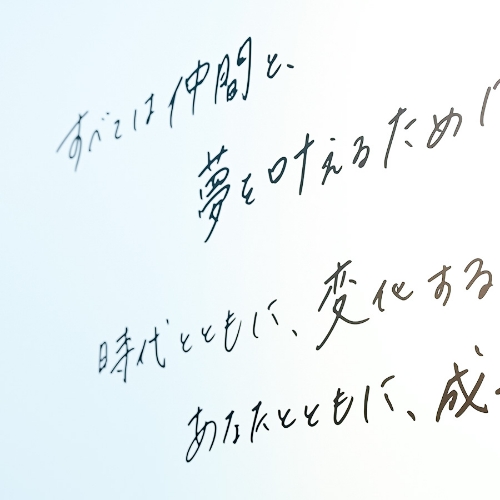 すべては仲間と、
夢を叶えるために
時代とともに、変化する
あなたとともに、成